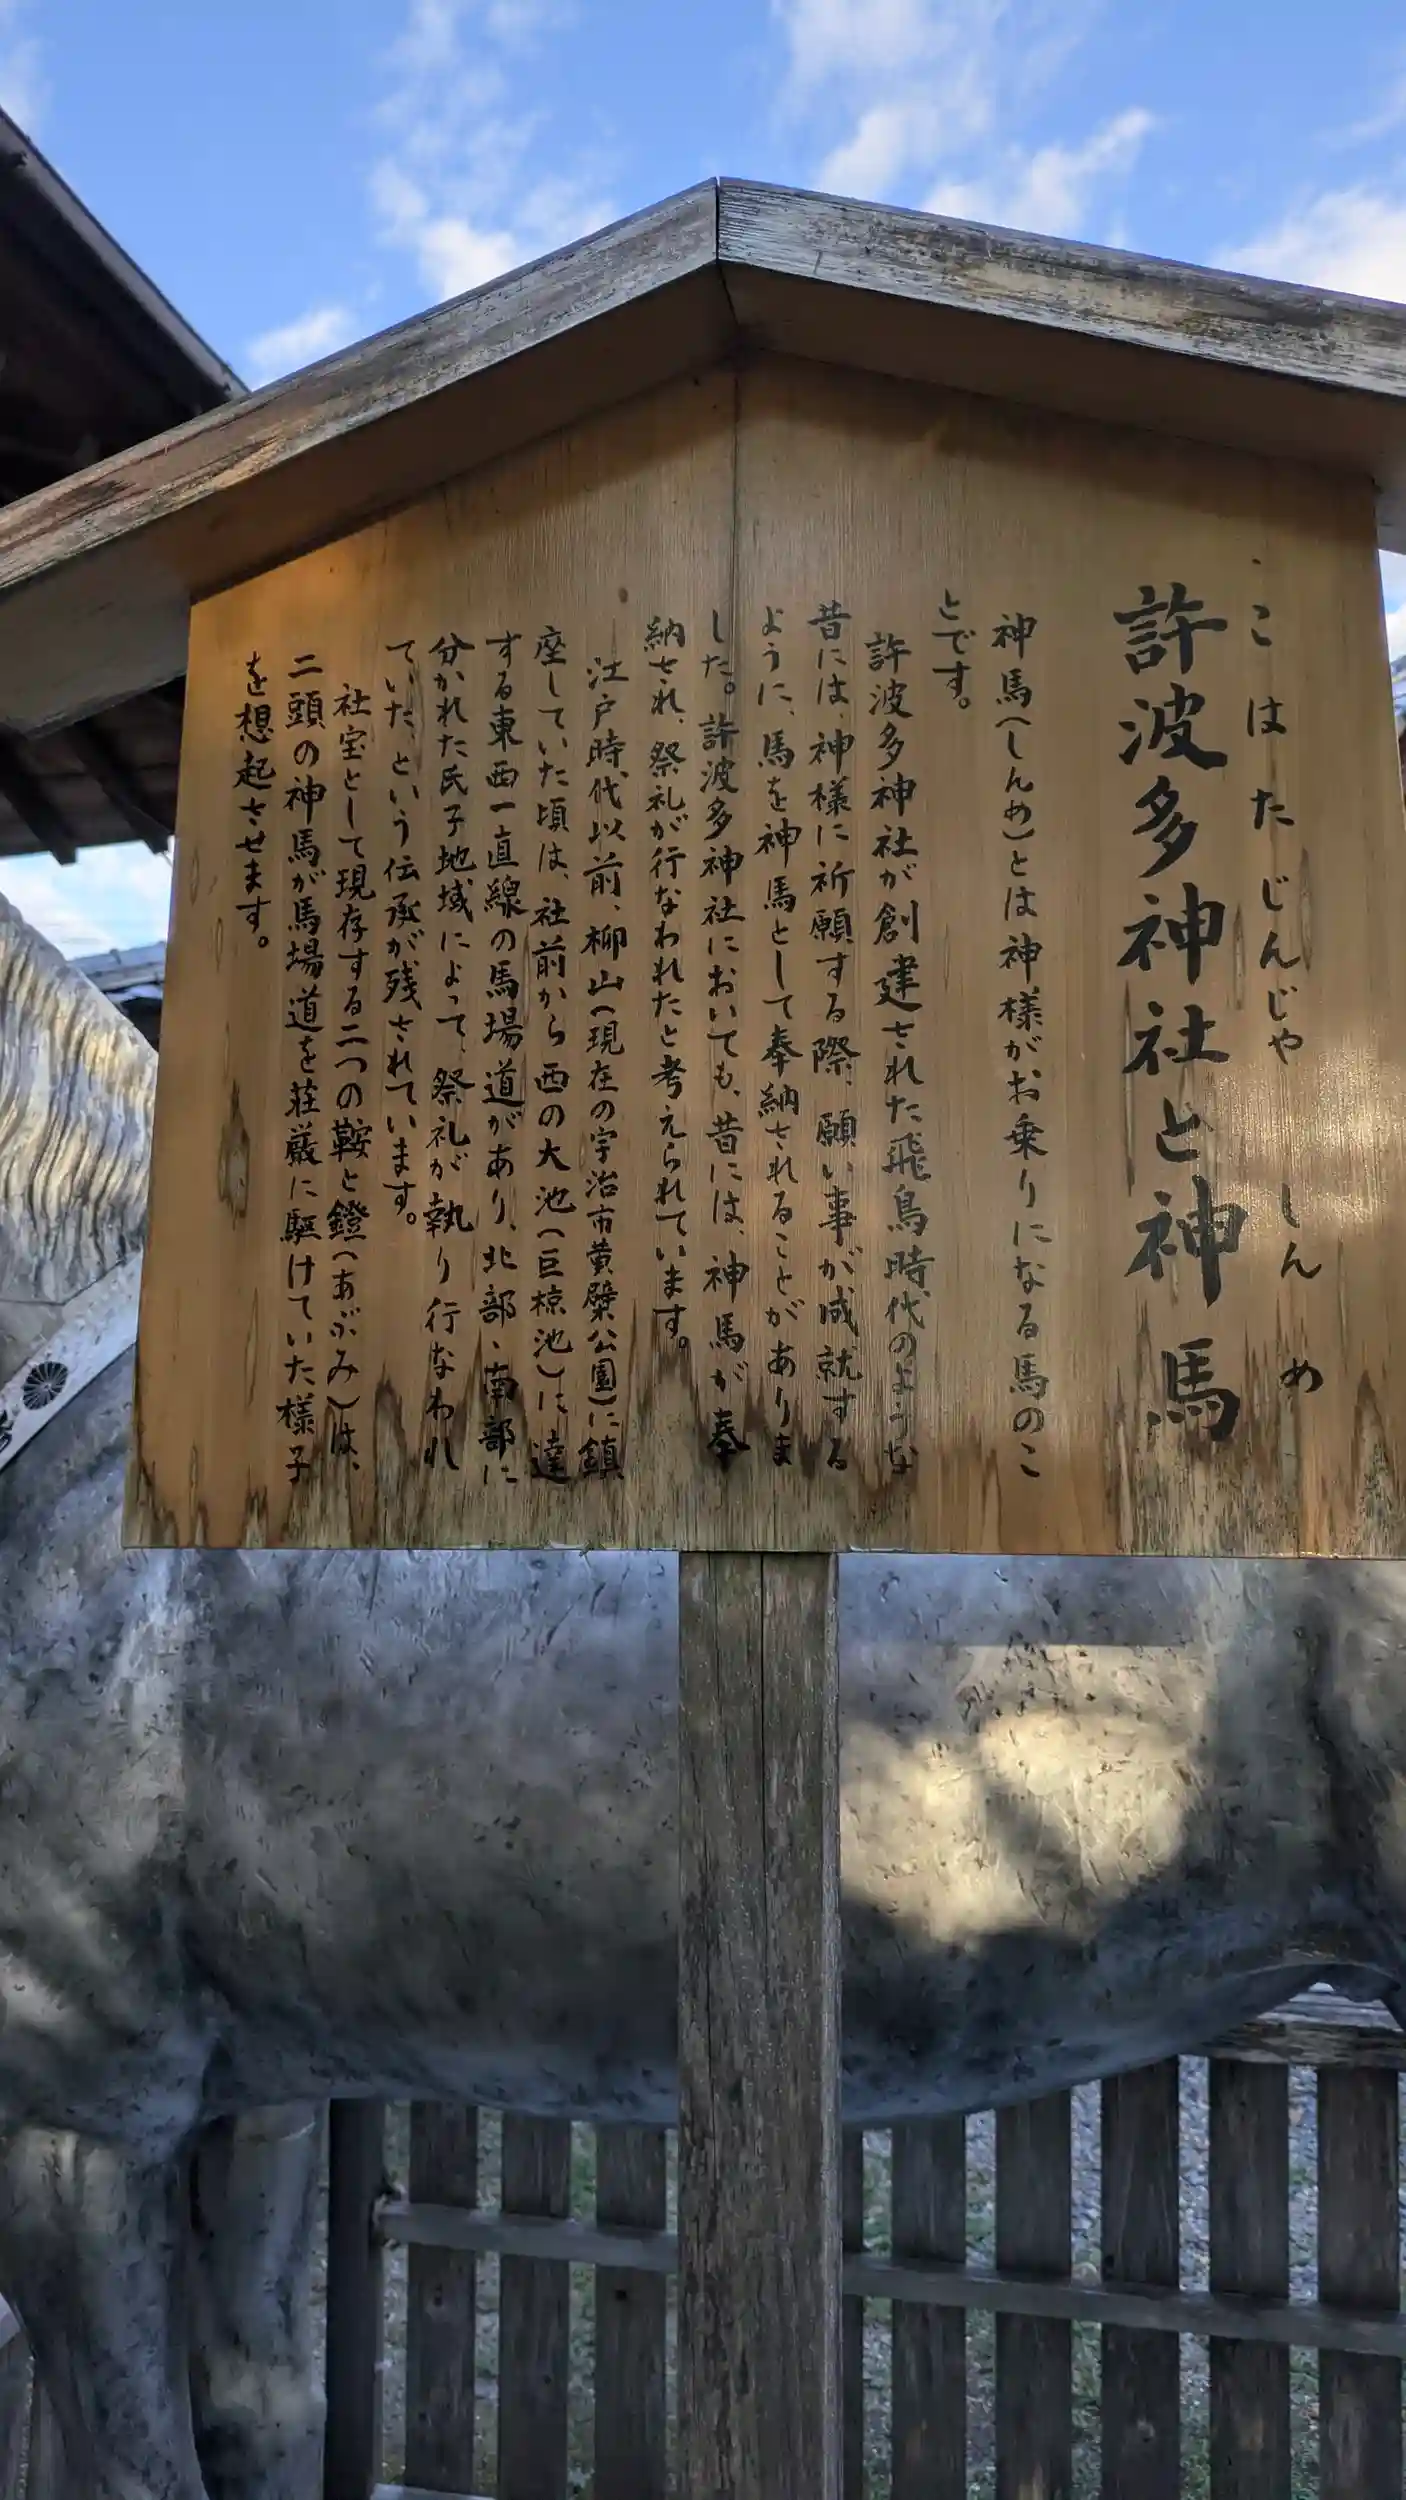 こはたじんじゃ しんめ
許波多神社と神馬
神馬(しんめ)とは神様がお乗りになる馬のこ
とです。
許波多神社が創建された飛鳥時代のような
昔には、神様に祈願する際、願い事が成就する
ように、馬を神馬として奉納されることがありま
した。許波多神社においても、昔には、神馬が奉
納され、祭礼が行なわれたと考えられています。
江戸時代以前、柳山(現在の宇治市黄檗公園)に鎮
座していた頃は、社前から西の大池(巨椋池)に達
する東西一直線の馬場道があり、北部、南部に
分かれた氏子地域によって、祭礼が執り行なわれ
ていた、という伝承が残されています。
社宝として現存する二つの鞍と鐙(あぶみ)は、
二頭の神馬が馬場道を荘厳に駆けていた様子
を想起させます。